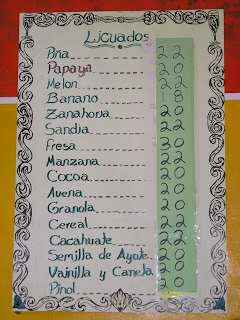 Licuados
Piña 22
Papaya 20
Melon 22
Banano 18
Zanahoria 20
Sandia 22
Fresa 30
Manzana 22
Cocoa 20
Avena 20
Granola 20
Cereal 22
Cacahuate 22
Semilla de Ayote 20
Vainilla y Canela 20
Pinol 20